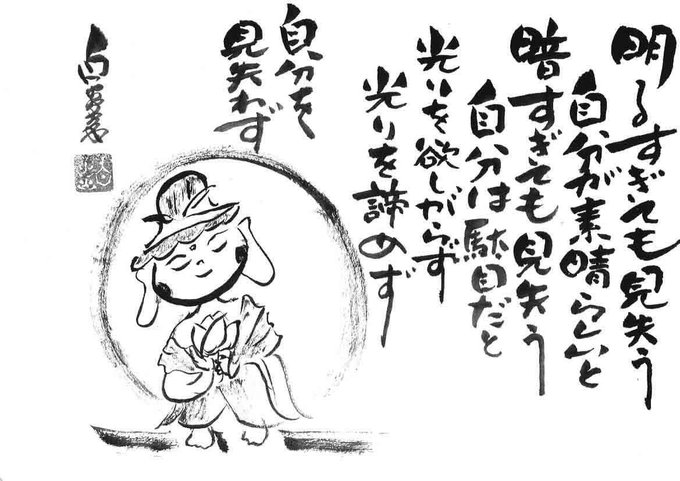 明るすぎても見失う
自分が素晴らしいと
暗すぎても見失う
自分は駄目だと
光りを欲しがらず
光りを諦めず
自分を
見失わず